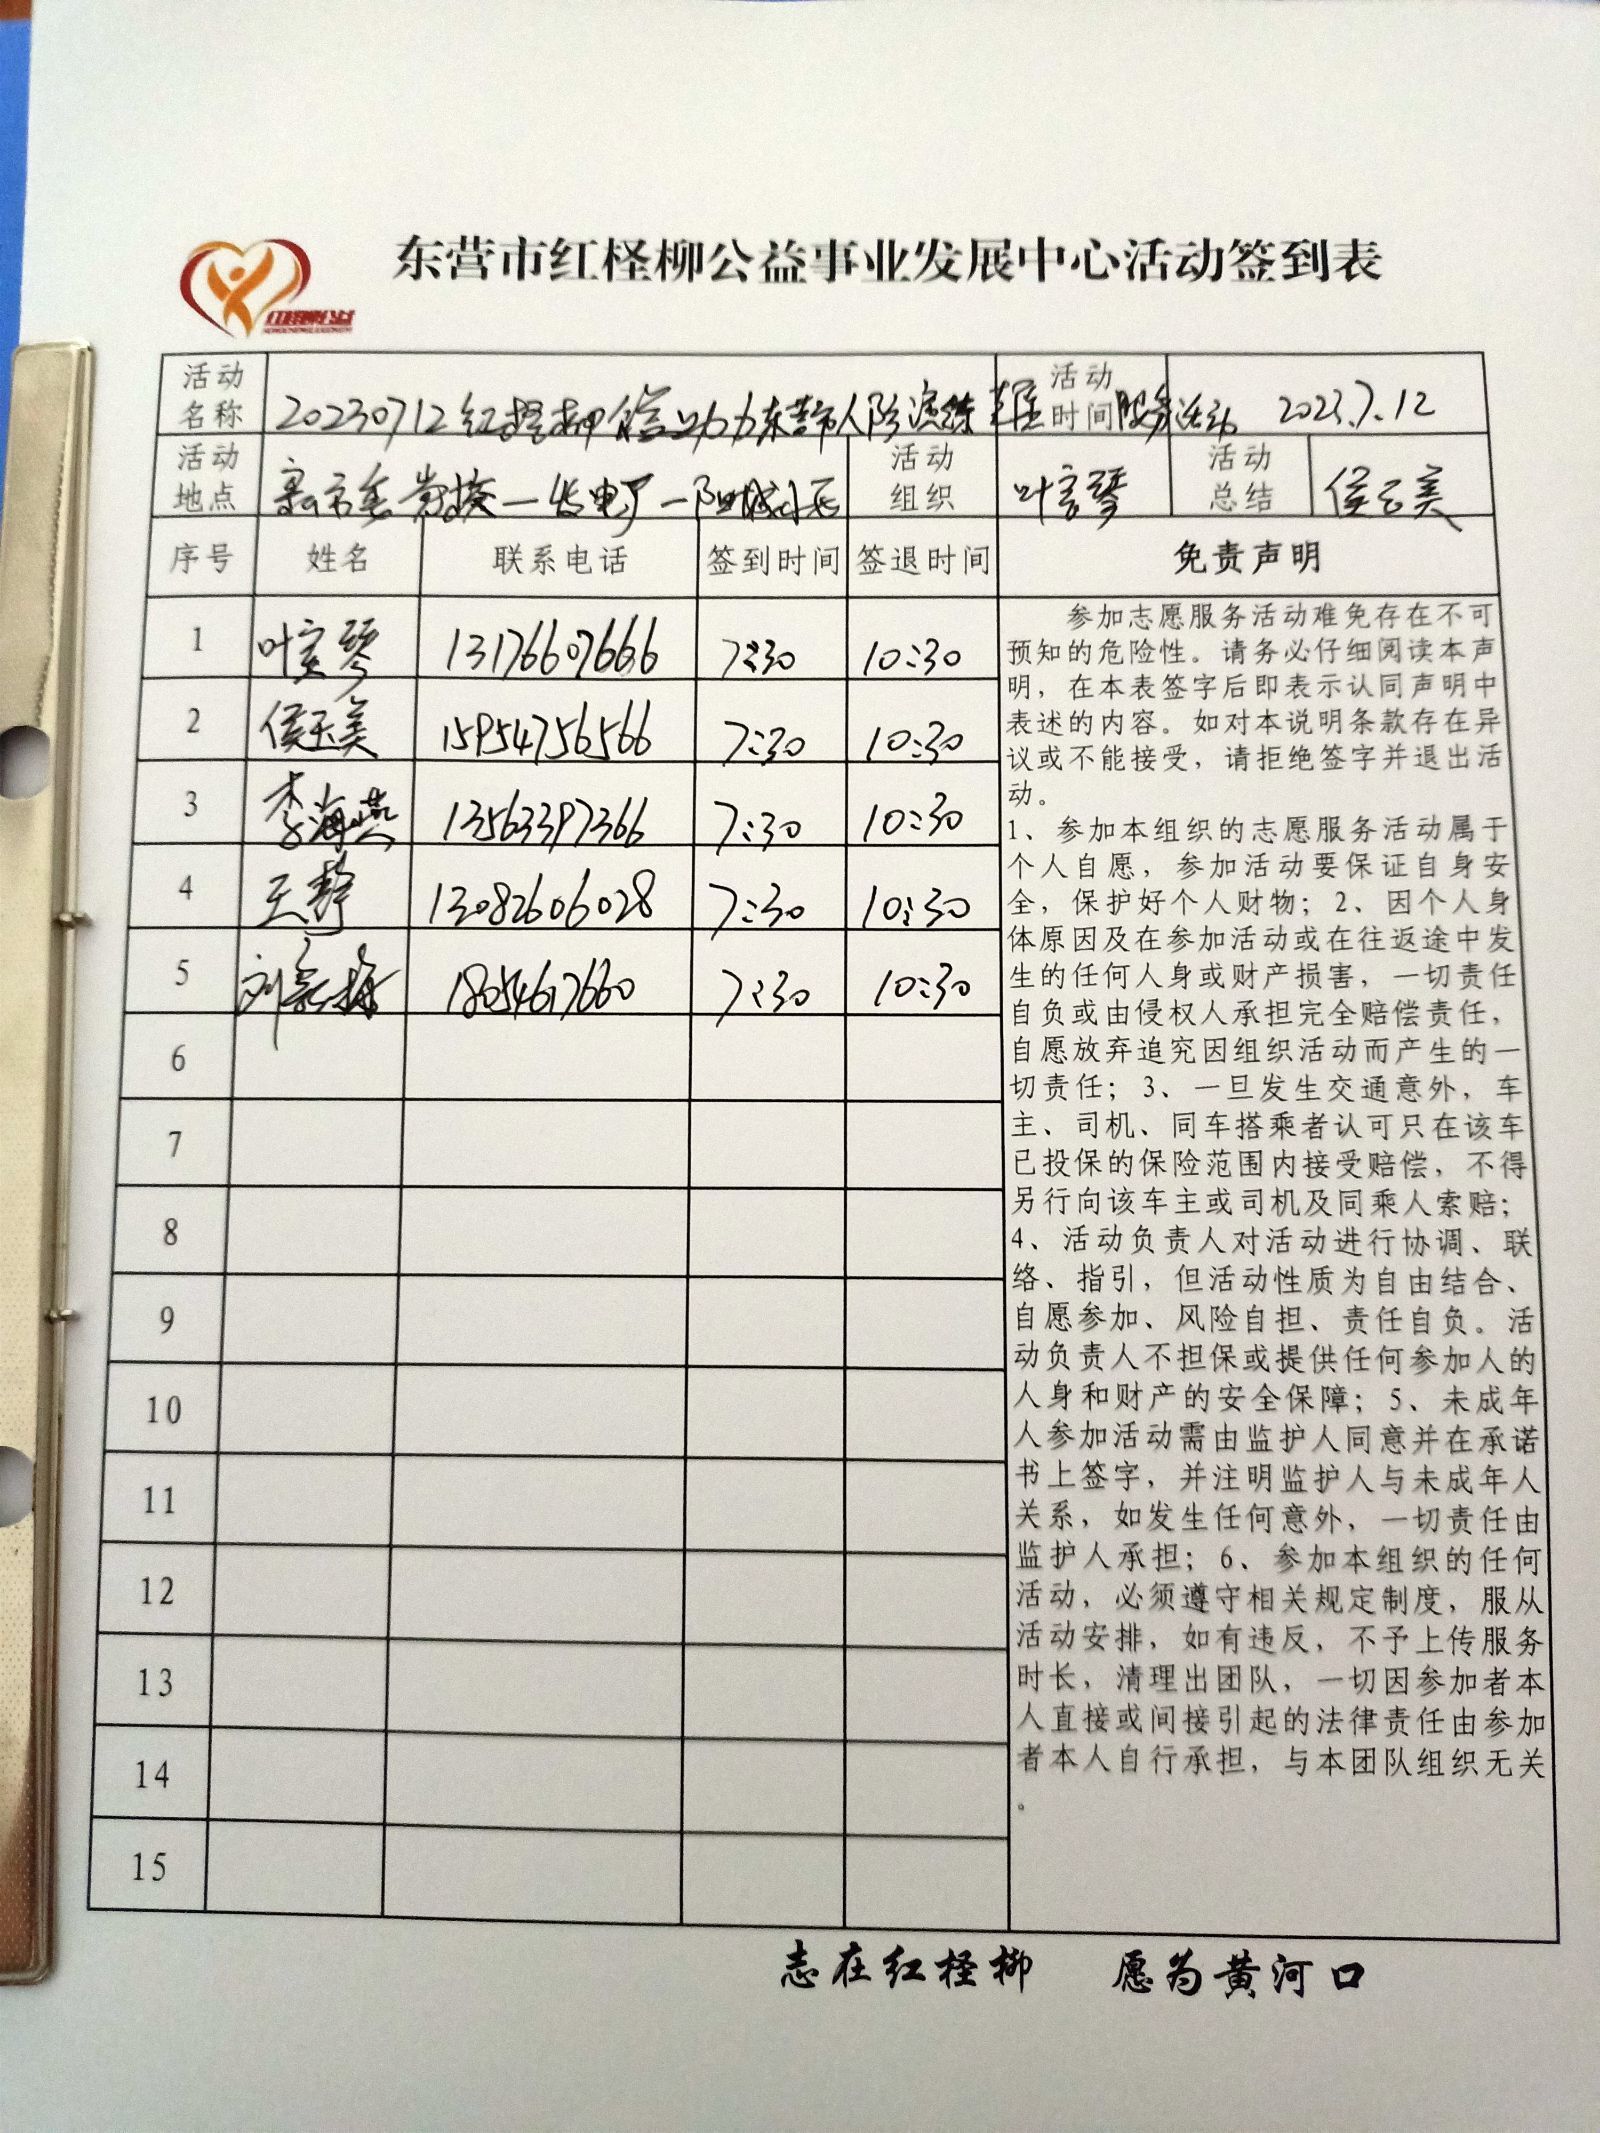 东营市红柽柳公益事业发展中心活动签到表
活动名称 20230712红柽柳公益助力东营市人防演练 服务活动 活动时间 2023.7.12
活动地点 一发电厂一 活动组织 叶宝琴 活动总结 侯玉美
序号 姓名 联系电话 签到时间 签退时间 免责声明
1 叶宝琴 13176607666 7:30 10:30
2 侯玉美 15954756566 7:30 10:30
3 李海燕 13563397366 7:30 10:30
4 王静 13082606028 7:30 10:30
5 刘新梅 18054617660 7:30 10:30
6
7
8
9
10
11
12
13
14
15
参加志愿服务活动难免存在不可
预知的危险性。请务必仔细阅读本声
明，在本表签字后即表示认同声明中
表述的内容。如对本说明条款存在异
议或不能接受，请拒绝签字并退出活
动。
1、参加本组织的志愿服务活动属于
个人自愿，参加活动要保证自身安
全，保护好个人财物；2、因个人身
体原因及在参加活动或在往返途中发
生的任何人身或财产损害，一切责任
自负或由侵权人承担完全赔偿责任，
自愿放弃追究因组织活动而产生的一
切责任；3、一旦发生交通意外，车
主、司机、同车搭乘者认可只在该车
已投保的保险范围内接受赔偿，不得
另行向该车主或司机及同乘人索赔；
4、活动负责人对活动进行协调、联
络、指引，但活动性质为自由结合、
自愿参加、风险自担、责任自负。活
动负责人不担保或提供任何参加人的
人身和财产的安全保障；5、未成年
人参加活动需由监护人同意并在承诺
书上签字，并注明监护人与未成年人
关系，如发生任何意外，一切责任由
监护人承担；6、参加本组织的任何
活动，必须遵守相关规定制度，服从
活动安排，如有违反，不予上传服务
时长，清理出团队，一切因参加者本
人直接或间接引起的法律责任由参加
者本人自行承担，与本团队组织无关
。
志在红柽柳 愿为黄河口